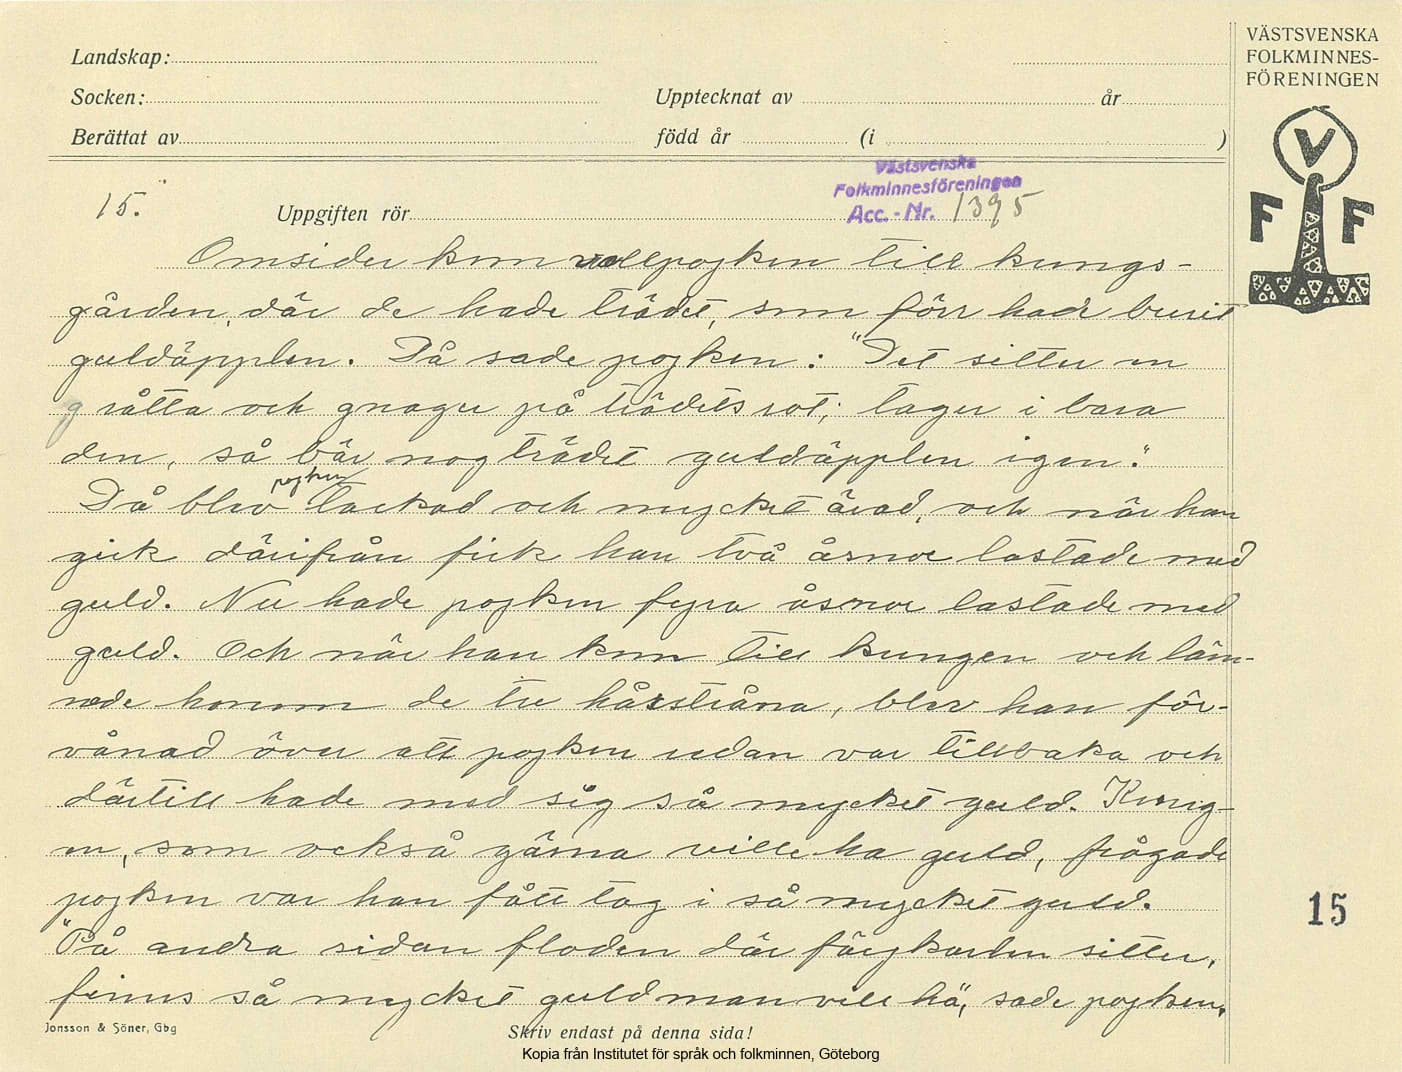 Landskap:
Socken:
Upptecknat av
år
Berättat av
född år
(i
)
VÄSTSVENSKA
FOLKMINNES-
FÖRENINGEN
V
F F
Västsvenska
Folkminnesföreningen
Acc.-Nr. 1395
15.
Uppgiften rör
Omsider kom pojken till kungs-
gården, där de hade trädet, som förr hade burit
guldäpplen. Då sade pojken: "Det sitter en
råtta och gnager på trädets rot; tager i bara
den, så bär nog trädet guldäpplen igen."
Då blev pojken tackad och mycket ärad, och när han
gick därifrån fick han två åsnor lastade med
guld. Nu hade pojken fyra åsnor lastade med
guld. Och när han kom till kungen och läm-
nade honom de tre hårstråna, blev han för-
vånad över att pojken redan var tillbaka och
därtill hade med sig så mycket guld. Kung-
en, som också gärna ville ha guld, frågade
pojken var han fått tag i så mycket guld.
"På andra sidan floden där färjkarlen sitter,
finns så mycket guld man vill ha", sade pojken.
15
Jonsson & Söner, Gbg
Skriv endast på denna sida!
Kopia från Institutet för språk och folkminnen, Göteborg